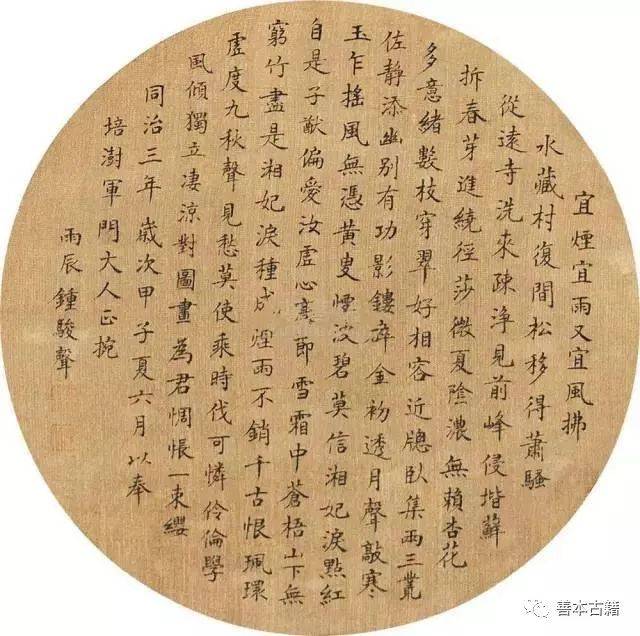 宜煙宜雨又宜風拂
水藏村復間松移得蕭騷
從遠寺洗來疎淨見前峰侵堦蘚
拆春芽迸繞徑莎微夏陰濃無賴杏花
多意緒數枝穿翠好相容近牕臥集兩三叢
佐靜添幽別有功影鏤碎金初透月聲敲寒
玉乍搖風無憑黃叟煙波碧莫信湘妃淚點紅
自是子猷偏愛汝虛心高節雪霜中蒼梧山下無
窮竹盡是湘妃淚種成煙雨不銷千古恨珮環
虛度九秋聲見愁莫使乘時伐可憐伶倫學
風傾獨立淒涼對圖畫為君惆悵一束纓
同治三年歲次甲子夏六月以奉
培澍軍門大人正捥
雨辰鍾駿聲
善本古籍